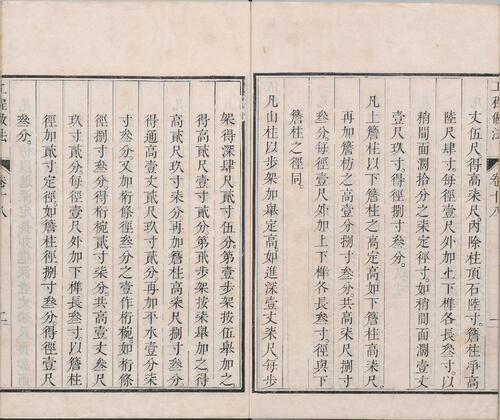 工程做法
卷十八
一
丈伍尺得高柒尺內除柱頂石陸寸。簷柱凈高
陸尺肆寸。每徑壹尺外加上下榫各長叁寸。以
稍間面濶拾分之柒定徑寸。如稍間面濶壹丈
壹尺玖寸。得徑捌寸叁分。
凡上簷柱以下簷柱之高定高。如下簷柱高柒尺。
再加簷枋之高壹分捌寸叁分。共高柒尺捌寸
叁分。每徑壹尺外加上下榫各長叁寸。徑與下
簷柱之徑同。
凡山柱以步架加舉定高。如進深壹丈柒尺。每步
架得深肆尺貳寸伍分。第壹步架按伍舉加之。
得高貳尺壹寸貳分。第貳步架按柒舉加之。得
高貳尺玖寸柒分。再加簷柱高柒尺捌寸叁分
得通高壹丈貳尺玖寸貳分。再加平水壹分柒
寸叁分。又加桁條徑叁分之壹作桁椀。如桁條
徑捌寸叁分。得桁椀貳寸柒分。共高壹丈叁尺
玖寸貳分。每徑壹尺外加下榫長叁寸。以簷柱
徑加貳寸定徑。如簷柱徑捌寸叁分。得徑壹尺
叁分。
工程做法
卷十八
二